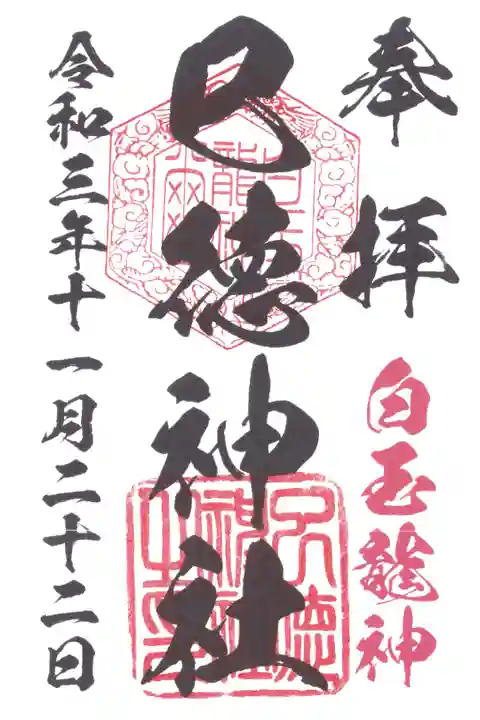 奉拝
白玉龍神
巳徳神社
令和三年十一月二十二日